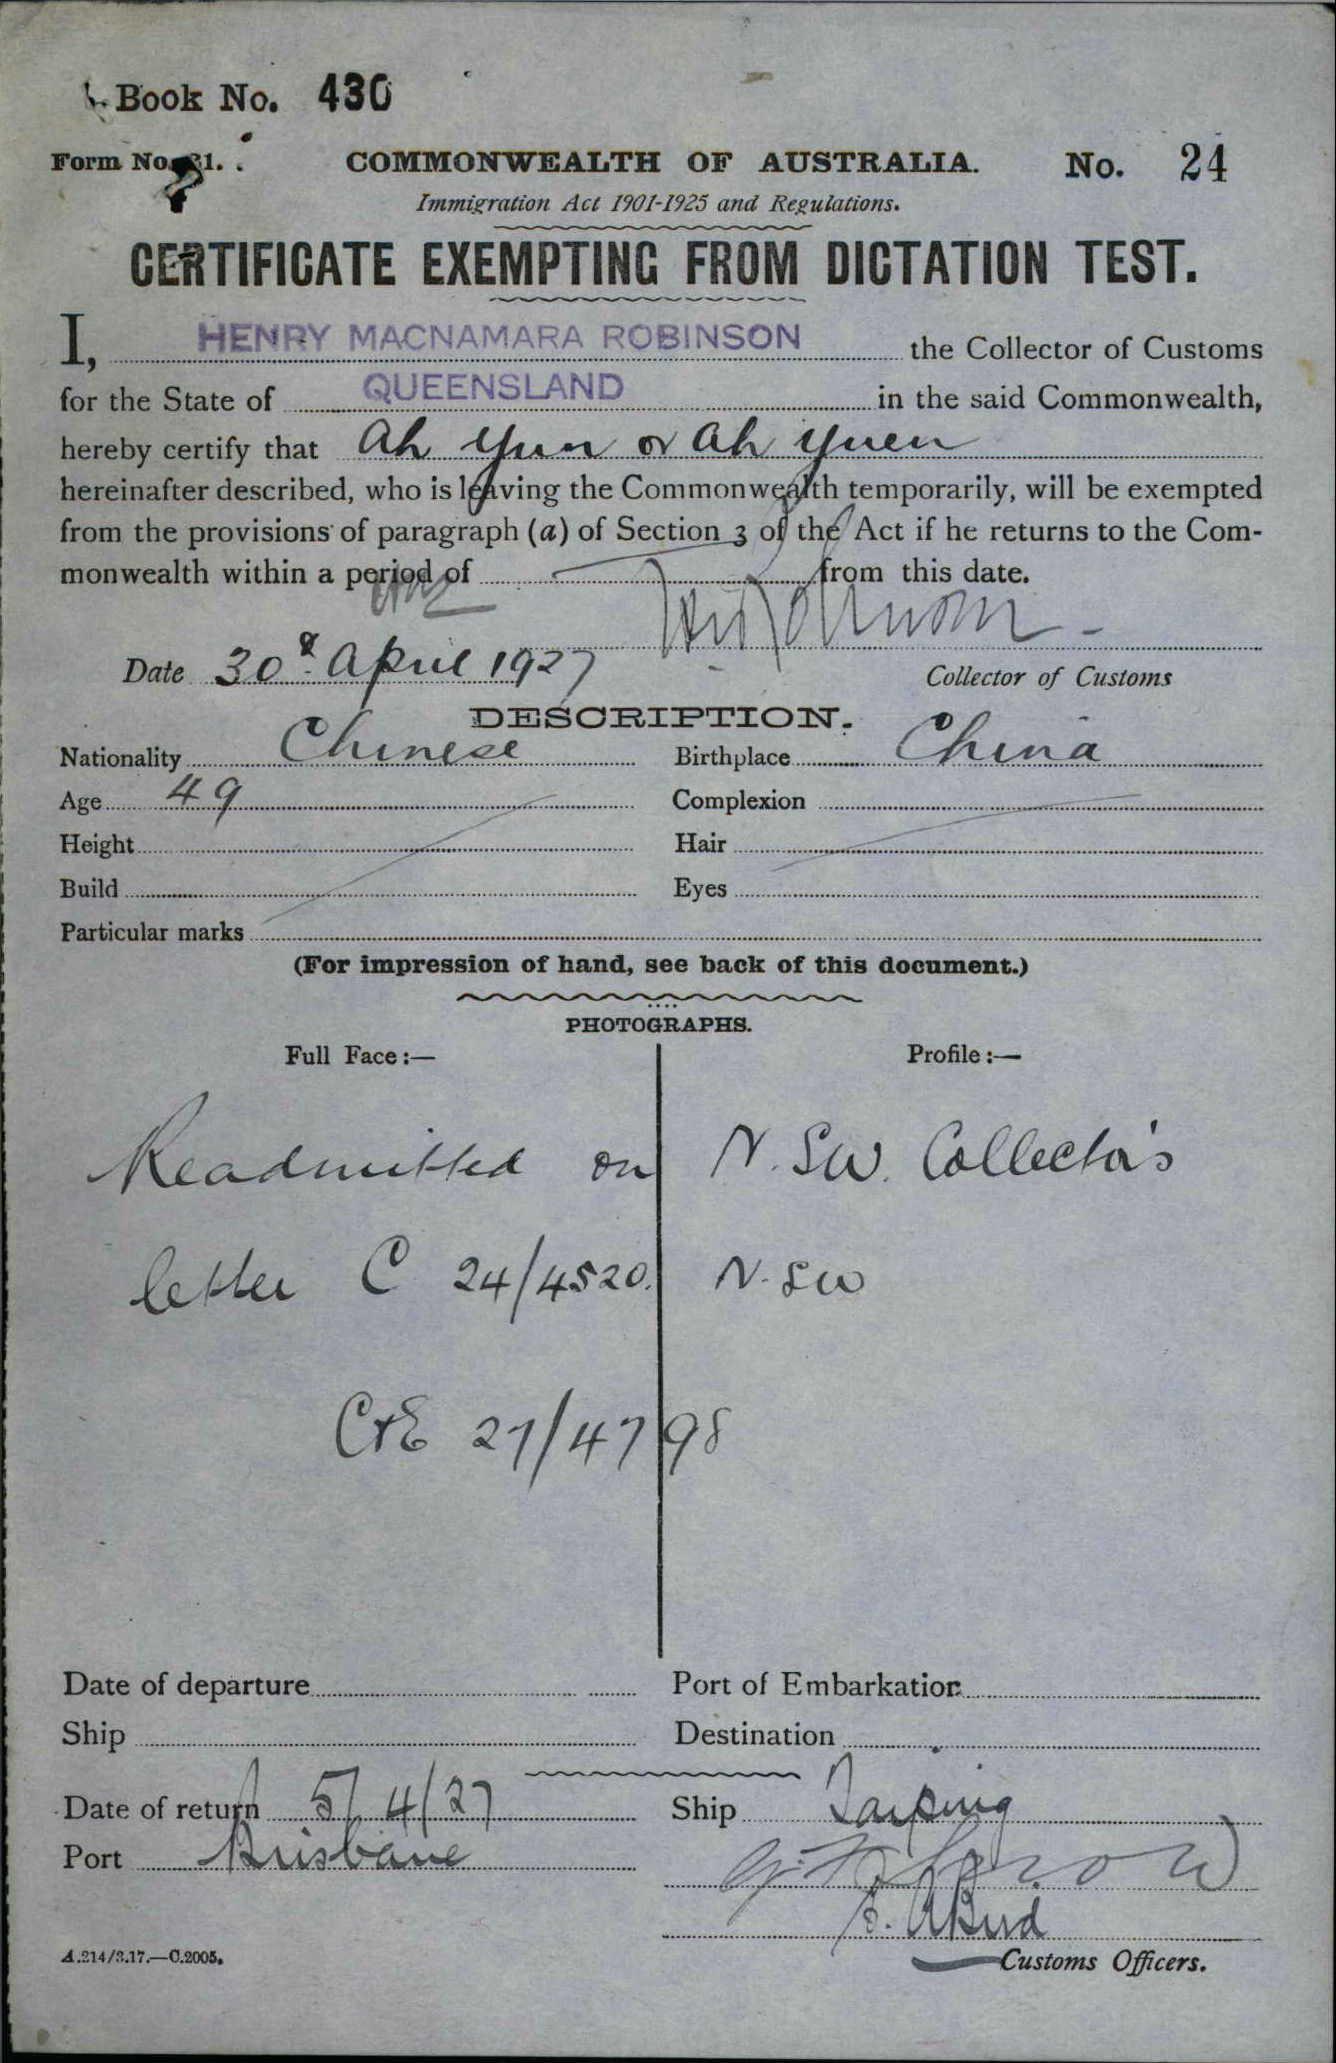 Book No. 430
Form No. 21.
COMMONWEALTH OF AUSTRALIA. No. 24
Immigration Act 1901-1925 and Regulations.
CERTIFICATE EXEMPTING FROM DICTATION TEST.
I, HENRY MACNAMARA ROBINSON the Collector of Customs
for the State of QUEENSLAND in the said Commonwealth,
hereby certify that Ah Yun or Ah Yuen
hereinafter described, who is leaving the Commonwealth temporarily, will be exempted
from the provisions of paragraph (a) of Section 3 of the Act if he returns to the Com-
monwealth within a period of from this date.
Date 30th April 1927 Collector of Customs
DESCRIPTION.
Nationality Chinese Birthplace China
Age 49 Complexion
Height Hair
Build Eyes
Particular marks
(For impression of hand, see back of this document.)
PHOTOGRAPHS.
Full Face:— Profile:—
Readmitted on N.SW. Collector's
letter C 24/4520. N.SW
C&E 27/4798
Date of departure Port of Embarkation
Ship Destination
Date of return 5/4/27 Ship Taiping
Port Brisbane
Bird
Customs Officers.
A.214/3.17.—C.2005.